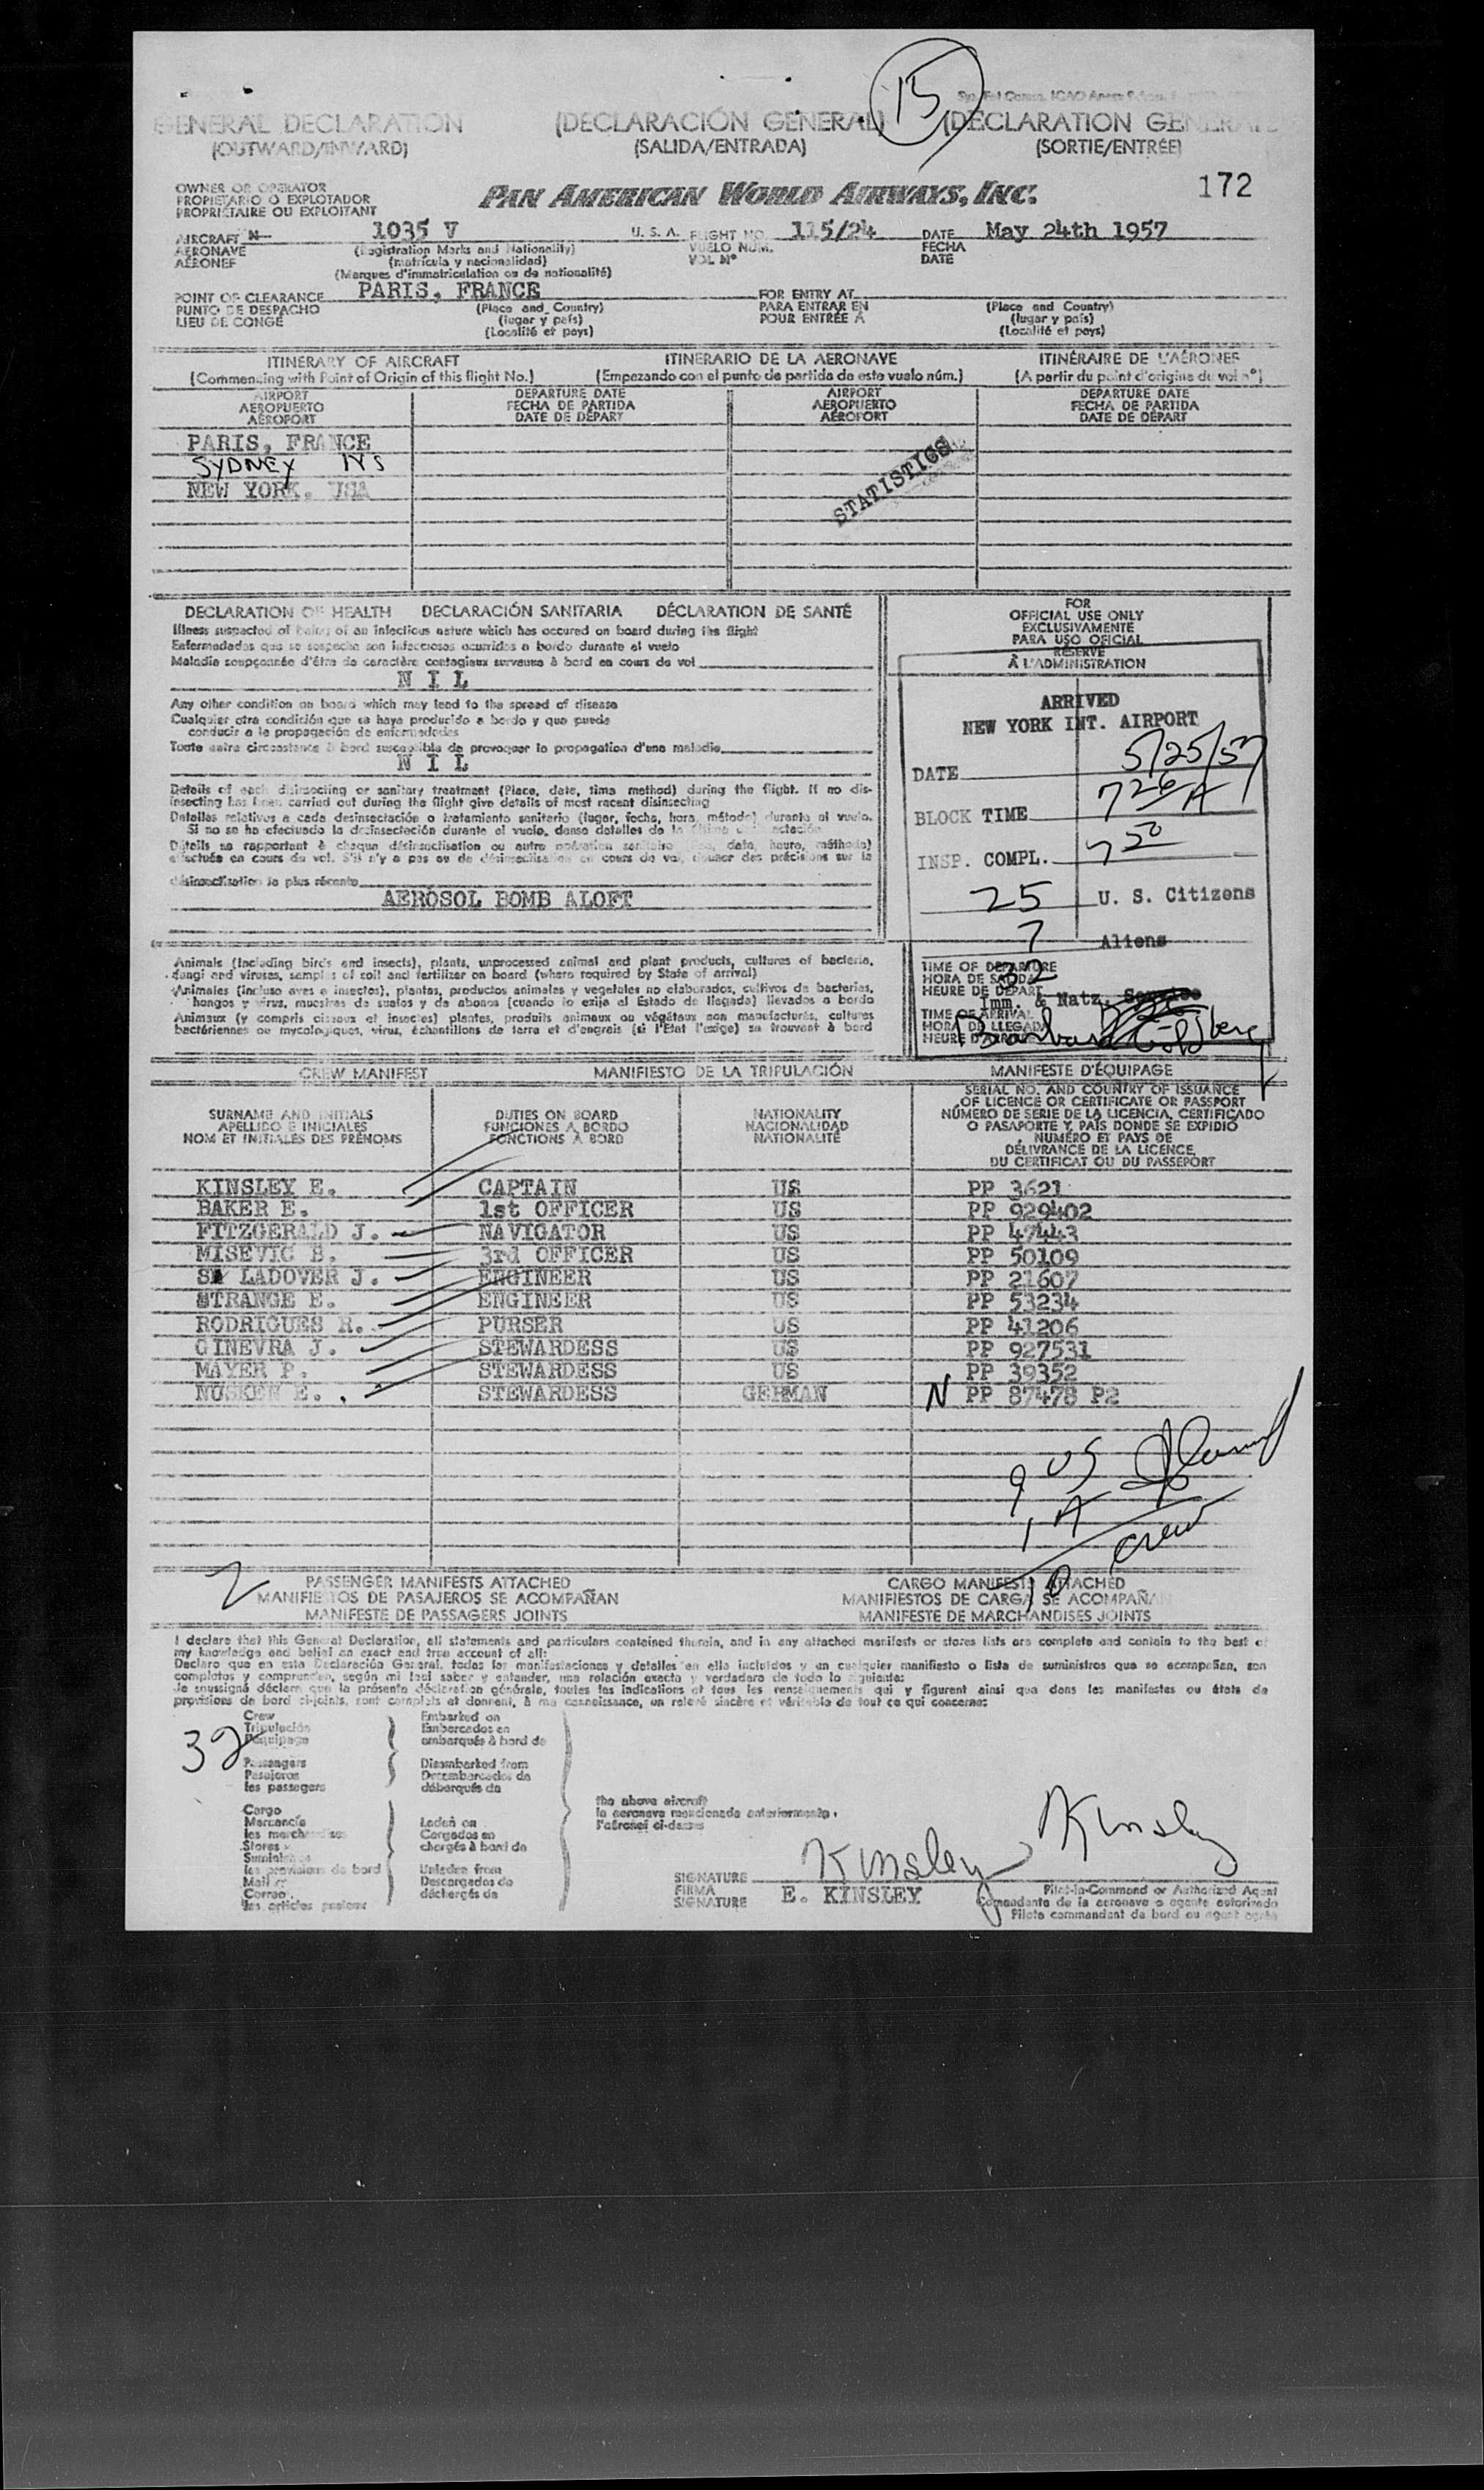 15
GENERAL DECLARATION (DECLARACIÓN GENERAL) (DECLARATION GENERALE
(OUTWARD/INWARD) (SALIDA/ENTRADA) (SORTIE/ENTRÉE)
OWNER OR OPERATOR
PROPIETARIO O EXPLOTADOR
PROPRIÉTAIRE OU EXPLOITANT
PAN AMERICAN WORLD AIRWAYS, INC.
172
AIRCRAFT N 1035 V U. S. A. FLIGHT NO. 115/24 DATE May 24th 1957
AERONAVE (Registration Marks and Nationality) VUELO NÚM. FECHA
AÉRONEF (matrícula y nacionalidad) VOL Nº DATE
(Marques d'immatriculation ou de nationalité)
POINT OF CLEARANCE PARIS, FRANCE FOR ENTRY AT
PUNTO DE DESPACHO (Place and Country) PARA ENTRAR EN (Place and Country)
LIEU DE CONGÉ (lugar y país) POUR ENTRÉE À (lugar y país)
(Localité et pays) (Localité et pays)
ITINERARY OF AIRCRAFT ITINERARIO DE LA AERONAVE ITINÉRAIRE DE L'AÉRONEF
(Commencing with Point of Origin of this flight No.) (Empezando con el punto de partida de este vuelo núm.) (A partir du point d'origine du vol nº)
AIRPORT DEPARTURE DATE AIRPORT DEPARTURE DATE
AEROPUERTO FECHA DE PARTIDA AEROPUERTO FECHA DE PARTIDA
AÉROPORT DATE DE DÉPART AÉROPORT DATE DE DÉPART
PARIS, FRANCE
SYDNEY NS
NEW YORK, USA
STATISTICS
DECLARATION OF HEALTH DECLARACIÓN SANITARIA DÉCLARATION DE SANTÉ
Illness suspected of being of an infectious nature which has occured on board during the flight
Enfermedades que se sospecha son infecciosas ocurridas a bordo durante el vuelo
Maladie soupçonnée d'être de caractère contagieux survenue à bord en cours de vol
N I L
Any other condition on board which may lead to the spread of disease
Cualquier otra condición que se haya producido a bordo y que puede
conducir a la propagación de enfermedades
Toute autre circonstance à bord susceptible de provoquer la propagation d'une maladie
N I L
Details of each disinsecting or sanitary treatment (Place, date, time method) during the flight. If no dis-
insecting has been carried out during the flight give details of most recent disinsecting
Detalles relativos a cada desinsectación o tratamiento sanitario (lugar, fecha, hora, método) durante el vuelo.
Si no se ha efectuado la desinsectación durante el vuelo, dense detalles de la última desinsectación
Détails se rapportant à chaque désinsectisation ou autre opération sanitaire (lieu, date, heure, méthode)
effectuée en cours de vol. S'il n'y a pas eu de désinsectisation en cours de vol, donner des précisions sur la
désinsectisation la plus récente
AEROSOL BOMB ALOFT
Animals (Including birds and insects), plants, unprocessed animal and plant products, cultures of bacteria,
fungi and viruses, samples of soil and fertilizer on board (where required by State of arrival)
Animales (incluso aves e insectos), plantas, productos animales y vegetales no elaborados, cultivos de bacterias,
hongos y virus, muestras de suelos y de abonos (cuando lo exija el Estado de llegada) llevados a bordo
Animaux (y compris oiseaux et insectes) plantes, produits animaux ou végétaux non manufacturés, cultures
bactériennes ou mycologiques, virus, échantillons de terre et d'engrais (si l'État l'exige) se trouvant à bord
FOR
OFFICIAL USE ONLY
EXCLUSIVAMENTE
PARA USO OFICIAL
RÉSERVÉ
À L'ADMINISTRATION
ARRIVED
NEW YORK INT. AIRPORT
DATE 5/25/57
BLOCK TIME 726 A
INSP. COMPL. 750
25 U. S. Citizens
7 Aliens
32
TIME OF DEPARTURE
HORA DE SALIDA
HEURE DE DÉPART
Imm. & Natz. Service
TIME OF ARRIVAL
HORA DE LLEGADA
HEURE D'ARRIVÉE
Barbara Goldberg
CREW MANIFEST MANIFIESTO DE LA TRIPULACIÓN MANIFESTE D'ÉQUIPAGE
SURNAME AND INITIALS
APELLIDO E INICIALES
NOM ET INITIALES DES PRÉNOMS
DUTIES ON BOARD
FUNCIONES A BORDO
FONCTIONS À BORD
NATIONALITY
NACIONALIDAD
NATIONALITÉ
SERIAL NO. AND COUNTRY OF ISSUANCE
OF LICENCE OR CERTIFICATE OR PASSPORT
NÚMERO DE SERIE DE LA LICENCIA, CERTIFICADO
O PASAPORTE Y PAÍS DONDE SE EXPIDIÓ
NUMÉRO ET PAYS DE
DÉLIVRANCE DE LA LICENCE,
DU CERTIFICAT OU DU PASSEPORT
KINSLEY E. CAPTAIN US PP 3621
BAKER E. 1st OFFICER US PP 929402
FITZGERALD J. NAVIGATOR US PP 47443
MISEVIC B. 3rd OFFICER US PP 50109
LADOVER J. ENGINEER US PP 21607
STRANGE E. ENGINEER US PP 53234
RODRIGUES R. PURSER US PP 41206
GINEVRA J. STEWARDESS US PP 927531
MAYER P. STEWARDESS US PP 39352
NUSKEN E. STEWARDESS GERMAN N PP 87478 P2
9 US
1 A
10 crew
2
PASSENGER MANIFESTS ATTACHED CARGO MANIFESTS ATTACHED
MANIFIESTOS DE PASAJEROS SE ACOMPAÑAN MANIFIESTOS DE CARGA SE ACOMPAÑAN
MANIFESTE DE PASSAGERS JOINTS MANIFESTE DE MARCHANDISES JOINTS
I declare that this General Declaration, all statements and particulars contained therein, and in any attached manifests or stores lists are complete and contain to the best of
my knowledge and belief an exact and true account of all:
Declaro que en esta Declaración General, todas las manifestaciones y detalles en ella incluidos y en cualquier manifiesto o lista de suministros que se acompañan, son
completos y comprenden, según mi leal saber y entender, una relación exacta y verdadera de todo lo siguiente:
Je soussigné déclare que la présente déclaration générale, toutes les indications et tous les renseignements qui y figurent ainsi que dans les manifestes ou états de
provisions de bord ci-joints, sont complets et donnent, à ma connaissance, un relevé sincère et véritable de tout ce qui concerne:
32
Crew
Tripulación
l'équipage
Passengers
Pasajeros
les passagers
Embarked on
Embarcados en
embarqués à bord de
Disembarked from
Desembarcados de
débarqués de
Cargo
Mercancía
les marchandises
Stores
Suministros
les provisions de bord
Mail
Correo
les articles postaux
Laden on
Cargados en
chargés à bord de
Unladen from
Descargados de
déchargés de
the above aircraft
la aeronave mencionada anteriormente
l'aéronef ci-dessus
Kinsley Kinsley
SIGNATURE
FIRMA
SIGNATURE
E. KINSLEY
Pilot-in-Command or Authorized Agent
Comandante de la aeronave o agente autorizado
Pilote commandant de bord ou agent agréé